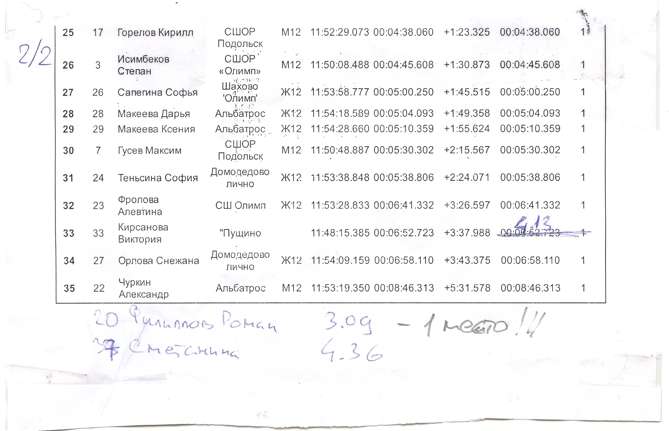 2/2
25 17 Горелов Кирилл СШОР Подольск М12 11:52:29.073 00:04:38.060 +1:23.325 00:04:38.060 1
26 3 Исимбеков Степан СШОР «Олимп» М12 11:50:08.488 00:04:45.608 +1:30.873 00:04:45.608 1
27 26 Сапегина Софья Шахово 'Олимп' Ж12 11:53:58.777 00:05:00.250 +1:45.515 00:05:00.250 1
28 28 Макеева Дарья Альбатрос Ж12 11:54:18.589 00:05:04.093 +1:49.358 00:05:04.093 1
29 29 Макеева Ксения Альбатрос Ж12 11:54:28.660 00:05:10.359 +1:55.624 00:05:10.359 1
30 7 Гусев Максим СШОР Подольск М12 11:50:48.887 00:05:30.302 +2:15.567 00:05:30.302 1
31 24 Теньсина София Домодедово лично Ж12 11:53:38.848 00:05:38.806 +2:24.071 00:05:38.806 1
32 23 Фролова Алевтина СШ Олимп Ж12 11:53:28.833 00:06:41.332 +3:26.597 00:06:41.332 1
4.13
33 33 Кирсанова Виктория "Пущино 11:48:15.385 00:06:52.723 +3:37.988 00:06:52.723 1
34 27 Орлова Снежана Домодедово лично Ж12 11:54:09.159 00:06:58.110 +3:43.375 00:06:58.110 1
35 22 Чуркин Александр Альбатрос М12 11:53:19.350 00:08:46.313 +5:31.578 00:08:46.313 1
20 Филиппов Роман 3.09 – 1 место!!!
37 Сметанина 4.36